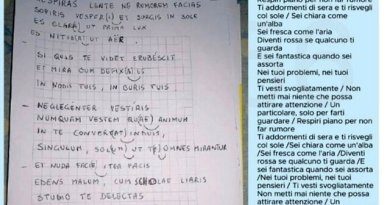 RESPIRAS LENTE NE RUMOREM FACIAS
SOPIRIS VESPER(I) ET SURGIS IN SOLE
ES CLARA UT PRIMA LUX
ES UT AËR.
SI QUIS TE VIDET ERUBESCIT
ET MIRA CUM ES
IN NODIS TUIS, IN CURIS TUIS
NEGLEGENTER VESTIRIS
NUMQUAM VESTEM QU(AE) ANIMUM
IN TE INDUIS,
SINGULUM, UT TE OMNES MIRANTUR
ET NUDA FACIE ITER FACIS
EDENS MALUM, CUM LIBRIS
STUDIO TE DELECTAS
Respiri piano per non far rumore
Ti addormenti di sera e ti risvegli
col sole / Sei chiara come
un'alba
Sei fresca come l'aria
Diventi rossa se qualcuno ti
guarda
E sei fantastica quando sei
assorta
Nei tuoi problemi, nei tuoi
pensieri
Ti vesti svogliatamente / Non
metti mai niente che possa
attirare attenzione / Un
particolare, solo per farti
guardare / Respiri piano per non
far rumore
Ti addormenti di sera e ti risvegli
col sole /Sei chiara come un'alba
/Sei fresca come l'aria /Diventi
rossa se qualcuno ti guarda /E
sei fantastica quando sei assorta
/Nei tuoi problemi, nei tuoi
pensieri / Ti vesti svogliatamente
Non metti mai niente che possa
attirare attenzione / Un